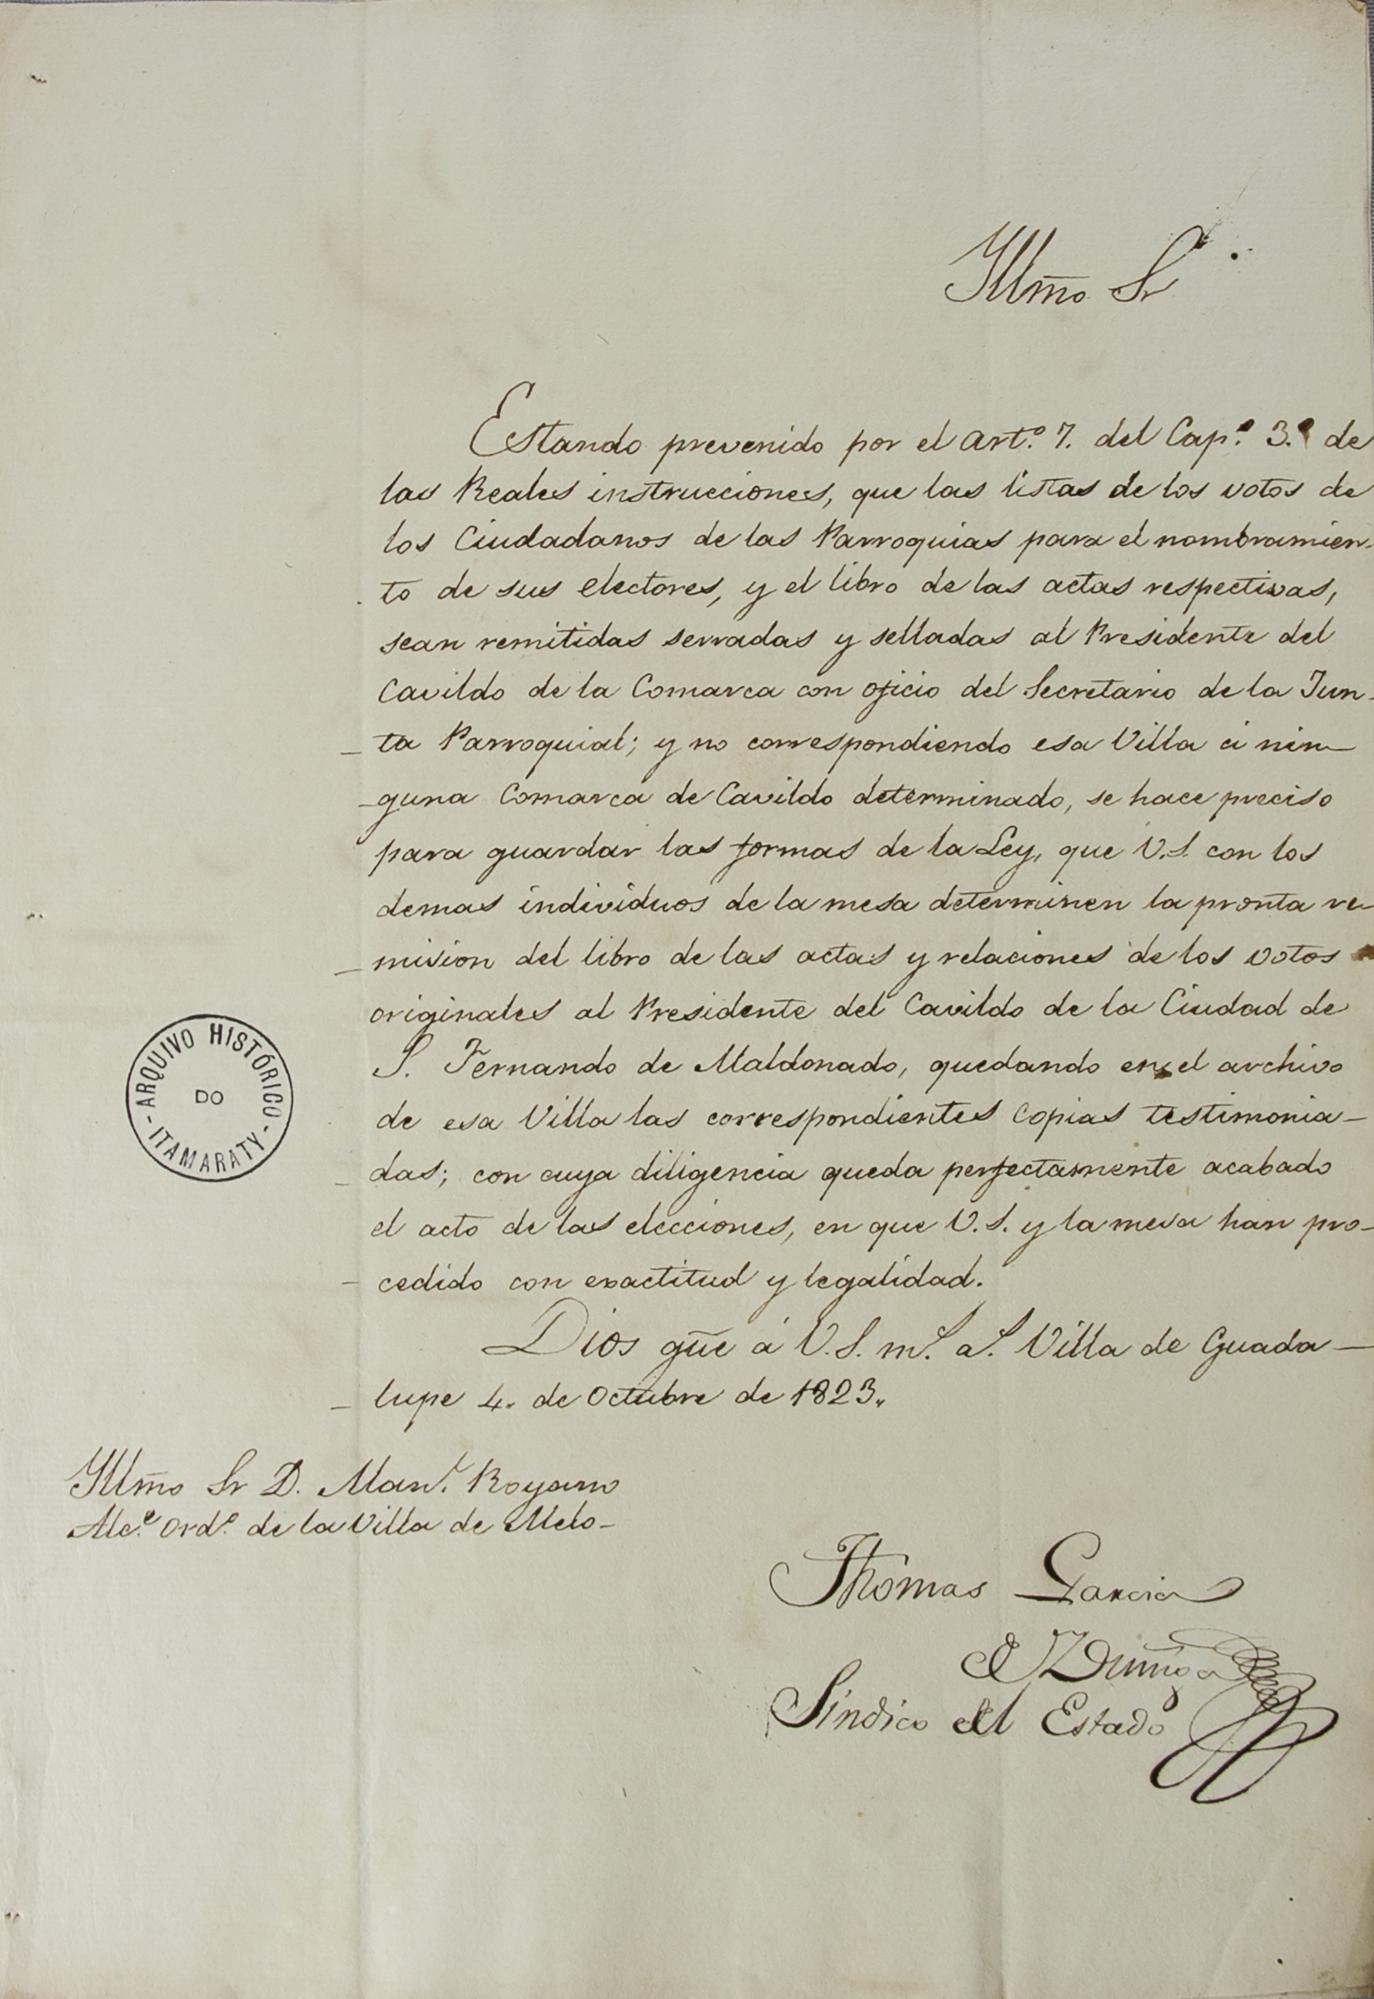 Yllm̃o Sr
Estando prevenido por el art.º 7. del Cap.º 3.º de
las Reales instrucciones, que las listas de los votos de
los Ciudadanos de las Parroquias para el nombramien-
to de sus electores, y el libro de las actas respectivas,
sean remitidas serradas y selladas al Presidente del
Cavildo de la Comarca con oficio del Secretario de la Jun-
ta Parroquial; y no correspondiendo esa Villa á nin-
guna Comarca de Cavildo determinado, se hace preciso
para guardar las formas de la Ley, que V.S. con los
demas individuos de la mesa determinen la pronta re-
mision del libro de las actas y relaciones de los votos
originales al Presidente del Cavildo de la Ciudad de
S. Fernando de Maldonado, quedando en el archivo
de esa Villa las correspondientes copias testimonia-
das; con cuya diligencia queda perfectamente acabado
el acto de las elecciones, en que V.S. y la mesa han pro-
cedido con exactitud y legalidad.
Dios gũe á V.S. m.s a.s Villa de Guada-
lupe 4. de Octubre de 1823.
Yllm̃o Sr D. Man.l
Alc.e Ord.o de la Villa de Melo-
Thomas Garcia
de Zuñiga
Sindico del Estado
- ARQUIVO HISTÓRICO -
DO
ITAMARATY